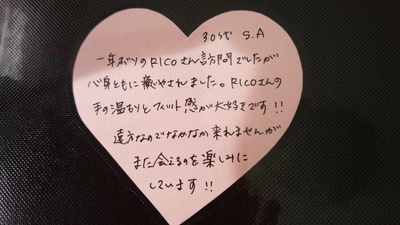 30代 S.A
一年ぶりのRICOさん訪問でしたが
心身ともに癒やされました。RICOさんの
手の温もりとフィット感が大好きです!!
遠方なのでなかなか来れませんが
また会えるのを楽しみに
しています!!